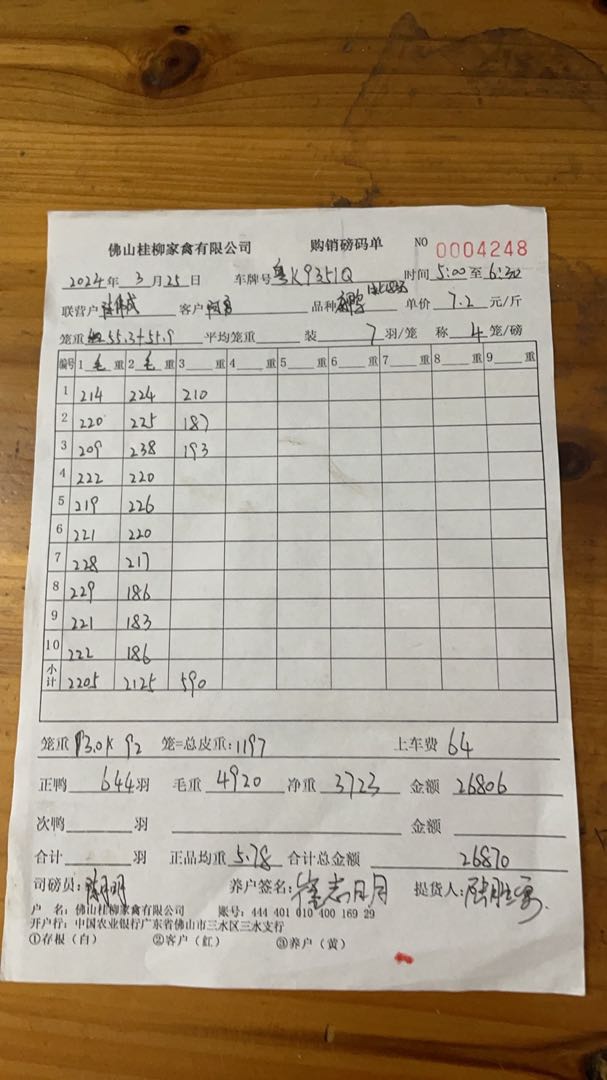 佛山桂柳家禽有限公司 购销磅码单 NO 0004248
2024年 3月 25日 车牌号 粤K9351Q 时间 5:00 至 6:30
联营户 客户 品种 单价 7.2 元/斤
笼重 55.3+55.9 平均笼重 装 7 羽/笼 称 4 笼/磅
编号 1 毛 重 2 毛 重 3 重 4 重 5 重 6 重 7 重 8 重 9 重
1 214 224 210
2 220 225 187
3 209 238 193
4 222 220
5 219 226
6 221 220
7 228 217
8 229 186
9 221 183
10 222 186
小计 2205 2125 590
笼重 13.0X 92 笼=总皮重: 1197 上车费 64
正鸭 644 羽 毛重 4920 净重 3723 金额 26806
次鸭 羽 金额
合计 羽 正品均重 5.78 合计总金额 26870
司磅员: 养户签名: 徐志明 提货人:
户 名: 佛山桂柳家禽有限公司 账号: 444 401 010 400 169 29
开户行: 中国农业银行广东省佛山市三水区三水支行
①存根（白） ②客户（红） ③养户（黄）